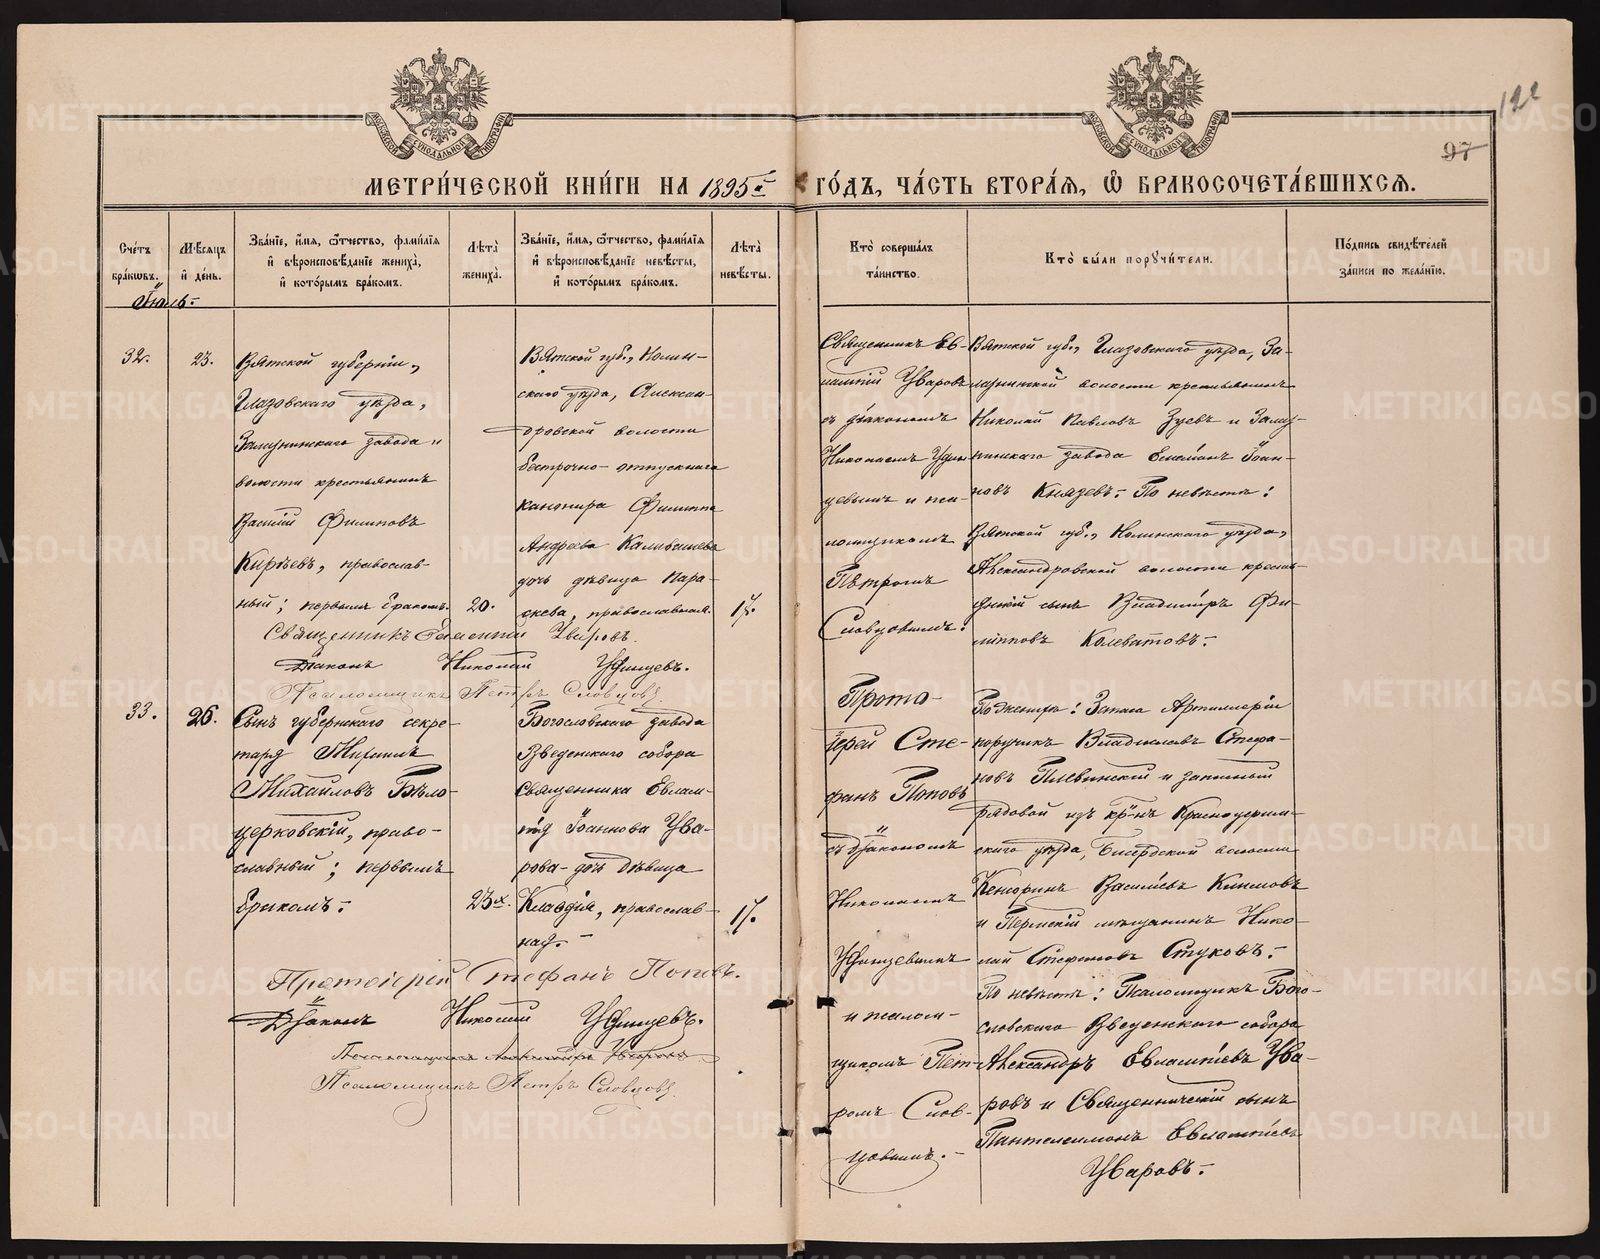 122
97
МЕТРИ́ЧЕСКОЙ КНИ́ГИ НА 1895й ГО́ДЪ, ЧА́СТЬ ВТОРА́Я, Ѡ БРАКОСОЧЕТА́ВШИХСЯ.
Сче́тъ бра́кѡвъ.
Мѣ́сяцъ и де́нь.
Зва́нїе, и́мя, ѻ҆́тчество, фами́лїя и вѣроисповѣ́данїе жениха̀, и кото́рымъ бра́комъ.
Лѣта̀ жениха̀.
Зва́нїе, и́мя, ѻ҆́тчество, фами́лїя и вѣроисповѣ́данїе невѣ́сты, и кото́рымъ бра́комъ.
Лѣта̀ невѣ́сты.
Кто̀ соверша́лъ та́инство.
Кто̀ бы́ли порꙋчи́тели.
По́дпись свидѣ́телей за́писи по жела́нїю.
Іюль.-
32.
23.
Вятской губерніи,
Глазовскаго уѣзда,
Залазнинскаго завода и
волости крестьянинъ
Василій Филиповъ
Кирѣевъ, православ-
ный; первымъ бракомъ.
20.
Вятской губ., Нолин-
скаго уѣзда, Алексан-
дровской волости
безсрочно-отпускнаго
канонира Филиппа
Андреева
дочь дѣвица Пара-
скева, православная.
17.
Священникъ Ев-
лампій Уваровъ
съ діакономъ
Николаемъ Удин-
цевымъ и пса-
ломщикомъ
Петромъ
Словцовымъ.
Вятской губ., Глазовскаго уѣзда, За-
лазнинской волости крестьянинъ
Николай Павловъ Зуевъ и Залаз-
нинскаго завода Іоан-
новъ Князевъ. По невѣстѣ:
Вятской губ., Нолинскаго уѣзда,
Александровской волости кресть-
янскій сынъ Владиміръ Фи-
липповъ Колеватовъ.-
Священникъ Евлампій Уваровъ.
Діаконъ Николай Удинцевъ.
Псаломщикъ Петръ Словцовъ
33.
26.
Сынъ губернскаго секре-
таря Михаилъ
Михайловъ Бѣло-
церковскій, право-
славный; первымъ
бракомъ.-
23х.
Богословскаго завода
Введенскаго собора
священника Евлам-
пія Іоаннова Ува-
рова- дочь дѣвица
Клавдія, православ-
ная.-
17.
Прото-
іерей Сте-
фанъ Поповъ
съ Діакономъ
Николаемъ
Удинцевымъ
и псалом-
щикомъ Пет-
ромъ Слов-
цовымъ.-
По женихѣ: Запаса Артиллеріи
поручикъ Владиславъ Стефа-
новъ Плевинскій и запасный
рядовой изъ кр-нъ Красноуфим-
скаго уѣзда, Бисертской волости
Кенсоринъ Васильевъ Климовъ
и Пермскій мѣщанинъ Нико-
лай Стефановъ Стуковъ.-
По невѣстѣ: Псаломщикъ Бого-
словскаго Введенскаго собора
Александръ Евлампіевъ Ува-
ровъ и Священническій сынъ
Пантелеимонъ Евлампіевъ
Уваровъ.-
Протоіерей Стефанъ Поповъ.
Діаконъ Николай Удинцевъ.
Псаломщикъ Александръ Уваровъ
Псаломщикъ Петръ Словцовъ
METRIKI.GASO-URAL.RU